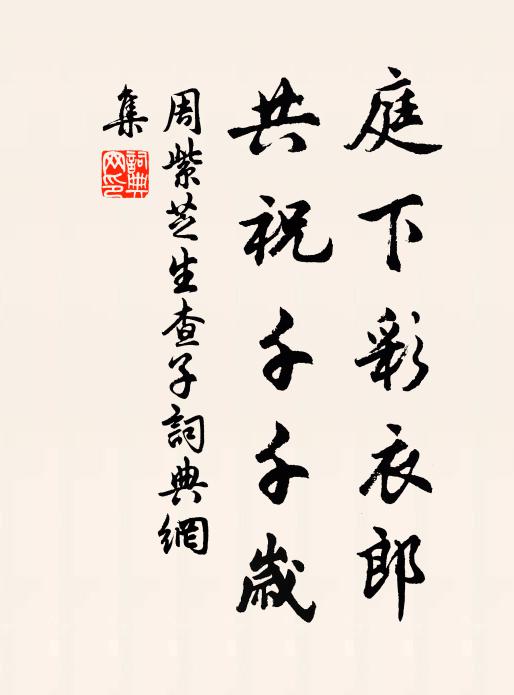 庭下彩衣郎
共祝千千歲
周紫芝生查子詞典網
集
詞典
网印